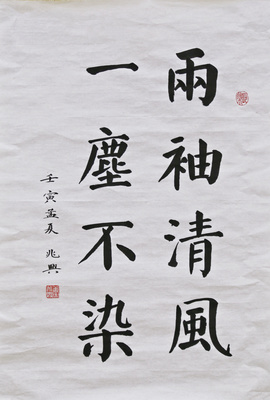 兩袖清風
一塵不染
壬寅孟夏 兆興